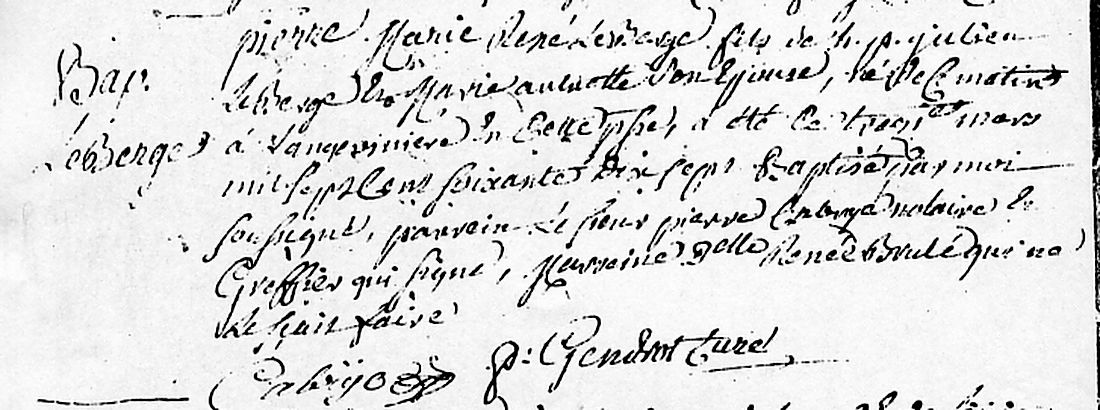 Bap.
LeBerge
pierre Marie René LeBerge fils de h. p. julien
LeBerge Et Marie Son Epouse, né de ce matin
à en cette psse, a été ce trente mars
mil sept Cent soixante Dix sept Baptisé par moi
soussigné, parrein Le sieur pierre notaire Et
Greffier qui signe, Marreine Delle Renée Brulé qui ne
Le sçait faire
p: Gendrot Curé